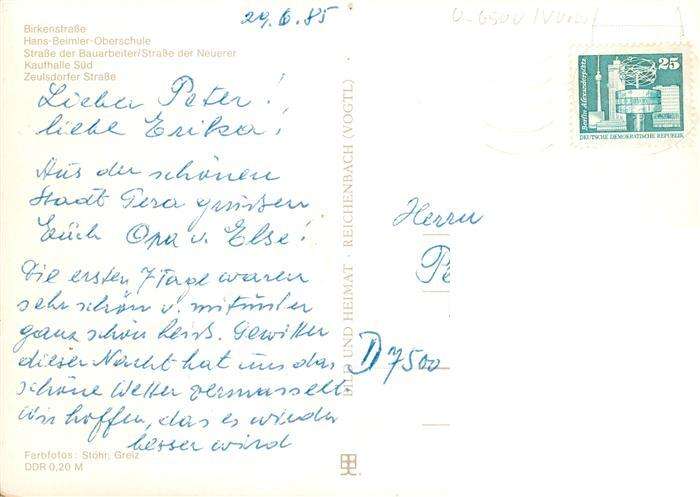 29.6.85
Birkenstraße
Hans-Beimler-Oberschule
Straße der Bauarbeiter/Straße der Neuerer
Kaufhalle Süd
Zeulsdorfer Straße
Lieber Peter!
liebe Erika!
Aus der schönen
Stadt Gera grüßen
Euch Opa u. Else!
Die ersten 7 Tage waren
sehr schön u. mitunter
ganz schön heiß. Gewitter
dieser Nacht hat uns das
schöne Wetter vermasselt.
Wir hoffen, das es wieder
besser wird
Farbfotos: Stöhr, Greiz
DDR 0,20 M
BILD UND HEIMAT · REICHENBACH (VOGTL)
25
Berlin-Alexanderplatz
DEUTSCHE DEMOKRATISCHE REPUBLIK
Herrn
Pe
D 7500